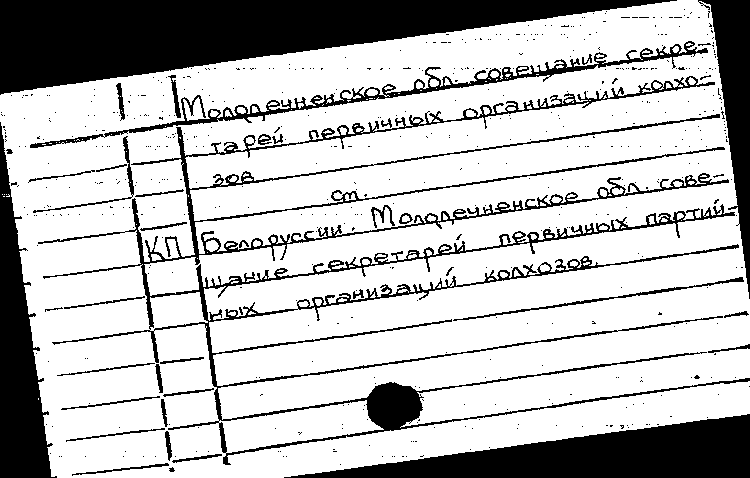 Молодечненское обл. совещание секре-
тарей первичных организаций колхо-
зов
ст.
КП Белоруссии. Молодечненское обл. сове-
щание секретарей первичных партий-
ных организаций колхозов.